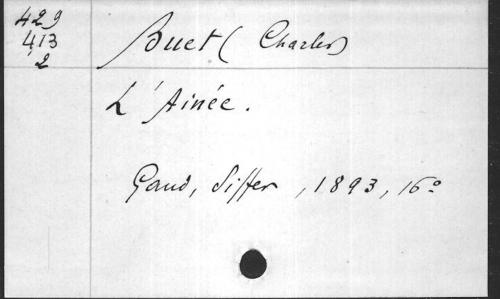 429
413
2
Buet (Charles)
L'Ainée.
Gand, Siffer, 1893, 16°